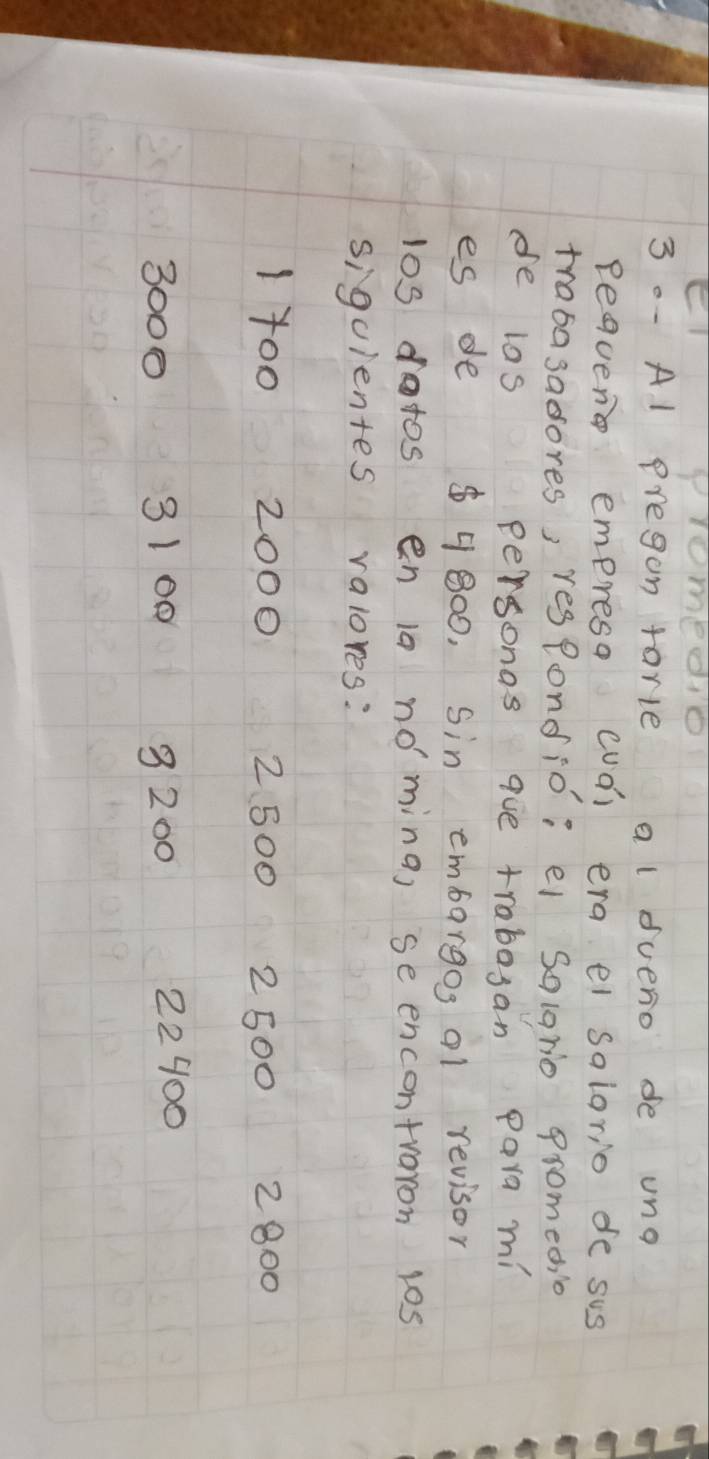 El promedio
3.- Al pregun tarle al dueño de una
Pequeña empresa cuál era el salario de sus
trabasadores, respondió; el salario promedio
de las personas que trabasan para mí
es de $4800, sin embargos al revisor
los datos en la nómina, se encontraron los
siguientes valores:
1700 2000 2500 2500 2800
3000 3100 3200 22400